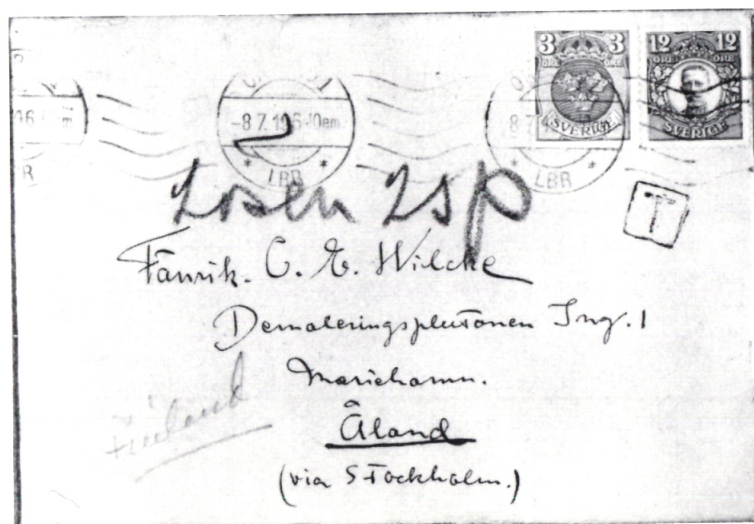 3 3
ÖRE ÖRE
SVERIGE
12 12
ÖRE ÖRE
SVERIGE
-8 7.19 6-10em.
* LBR *
8 7
* LBR *
T
Lösen 25p
Fänrik. C. E. Wilcke
Demoleringsplutonen Ing. 1
Mariehamn.
Åland
(via Stockholm.)
Finland